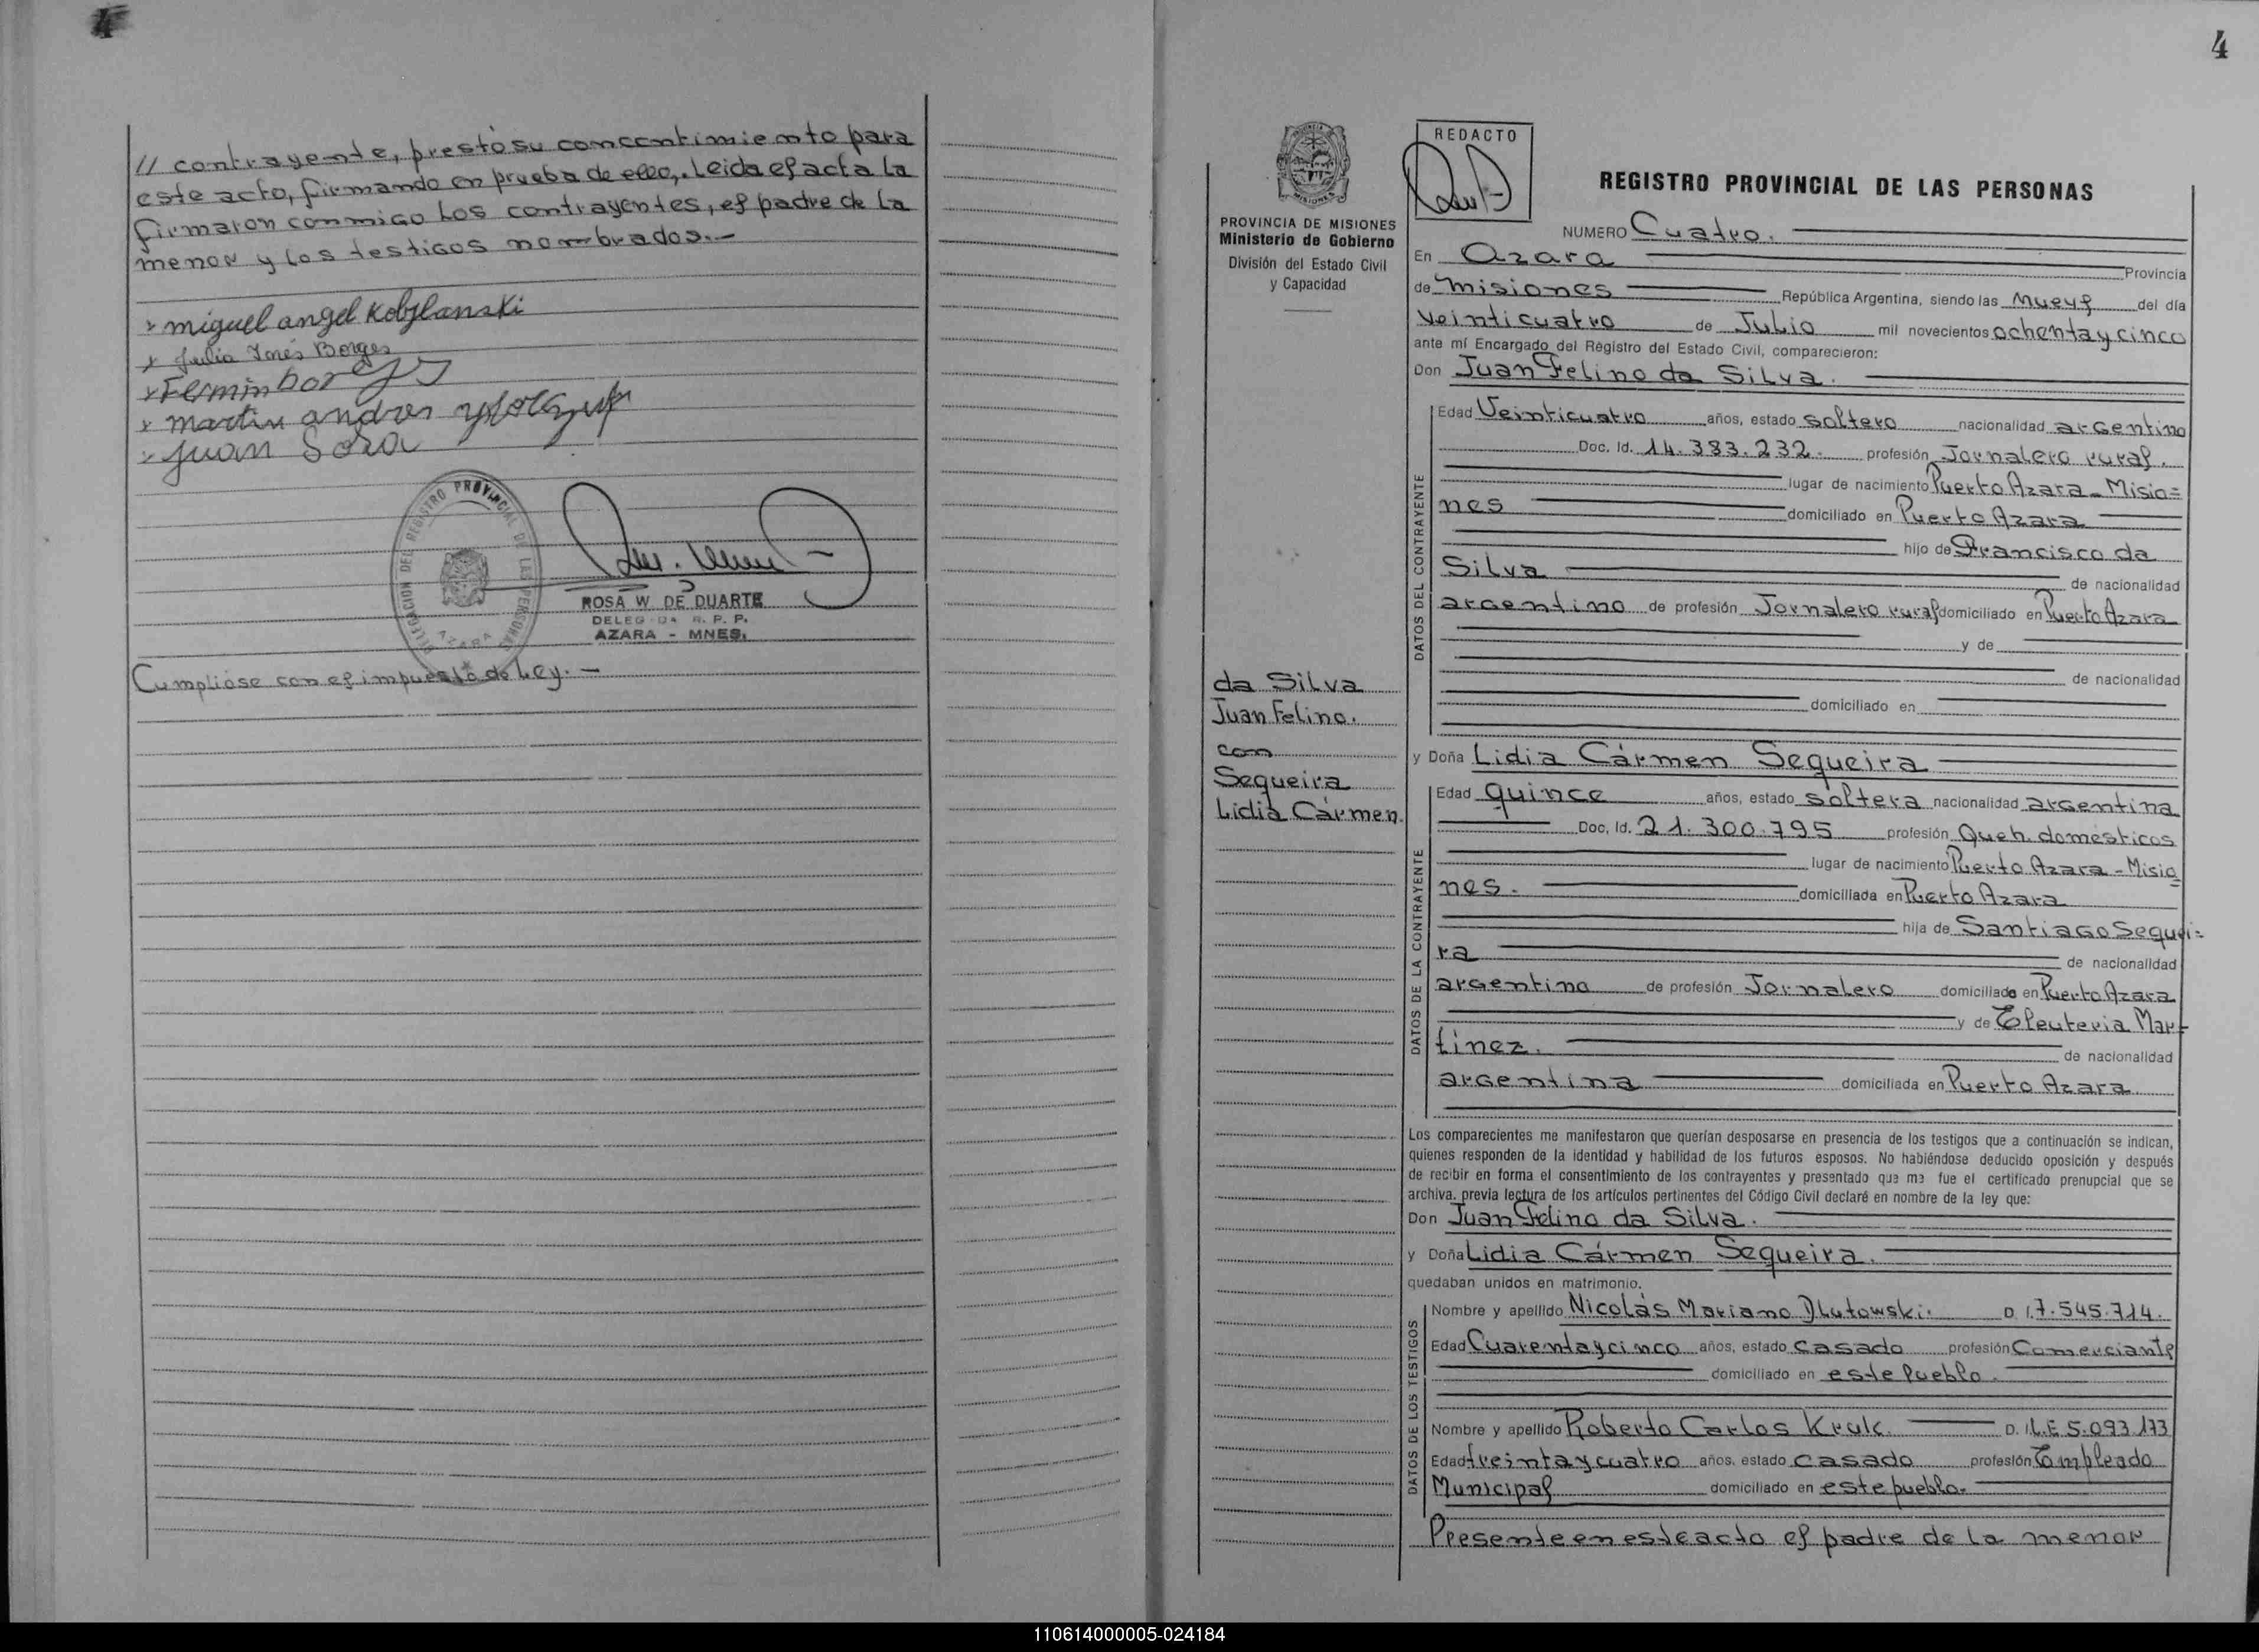 4
// contrayente, prestó su concentimiento para
este acto, firmando en prueba de ello,. Leida el acta la
firmaron conmigo los contrayentes, el padre de la
menor y los testigos nombrados.-
miguel angel Kobylanski
Julia Inés Borges
Fermin borges
martin andres
Juan Sosa
DELEGACION DEL REGISTRO PROVINCIAL DE LAS PERSONAS
AZARA
ROSA W. DE DUARTE
DELEGADA R. P. P.
AZARA - MNES.
Cumplióse con el impuesto de Ley.-
4
PROVINCIA DE MISIONES
Ministerio de Gobierno
División del Estado Civil
y Capacidad
REDACTO
REGISTRO PROVINCIAL DE LAS PERSONAS
NUMERO Cuatro.
En Azara Provincia
de Misiones República Argentina, siendo las Nueve del día
Veinticuatro de Julio mil novecientos ochenta y cinco
ante mí Encargado del Registro del Estado Civil, comparecieron:
Don Juan Felino da Silva.
DATOS DEL CONTRAYENTE
Edad Veinticuatro años, estado soltero nacionalidad argentino
Doc. Id. 14.383.232. profesión Jornalero rural.
lugar de nacimiento Puerto Azara - Misio=
nes domiciliado en Puerto Azara
hijo de Francisco da
Silva de nacionalidad
argentino de profesión Jornalero rural domiciliado en Puerto Azara
y de
de nacionalidad
domiciliado en
da Silva
Juan Felino.
con
Sequeira
Lidia Cármen.
y Doña Lidia Cármen Sequeira
DATOS DE LA CONTRAYENTE
Edad quince años, estado soltera nacionalidad argentina
Doc. Id. 21.300.795 profesión Queh. domésticos
lugar de nacimiento Puerto Azara - Misio=
nes. domiciliada en Puerto Azara
hija de Santiago Sequei=
ra de nacionalidad
argentino de profesión Jornalero domiciliado en Puerto Azara
y de Eleuteria Mar-
tinez. de nacionalidad
argentina domiciliada en Puerto Azara
Los comparecientes me manifestaron que querían desposarse en presencia de los testigos que a continuación se indican,
quienes responden de la identidad y habilidad de los futuros esposos. No habiéndose deducido oposición y después
de recibir en forma el consentimiento de los contrayentes y presentado que me fue el certificado prenupcial que se
archiva. previa lectura de los artículos pertinentes del Código Civil declaré en nombre de la ley que:
Don Juan Felino da Silva.
y Doña Lidia Cármen Sequeira.
quedaban unidos en matrimonio.
DATOS DE LOS TESTIGOS
Nombre y apellido Nicolás Mariano Dlutowski. D. I. 7.545.714.
Edad Cuarenta y cinco años, estado casado profesión Comerciante
domiciliado en este Pueblo.
Nombre y apellido Roberto Carlos Kruk. D. I. L.E 5.093.173
Edad treinta y cuatro años, estado casado profesión Empleado
Municipal domiciliado en este pueblo.
Presente en este acto el padre de la menor
110614000005-024184